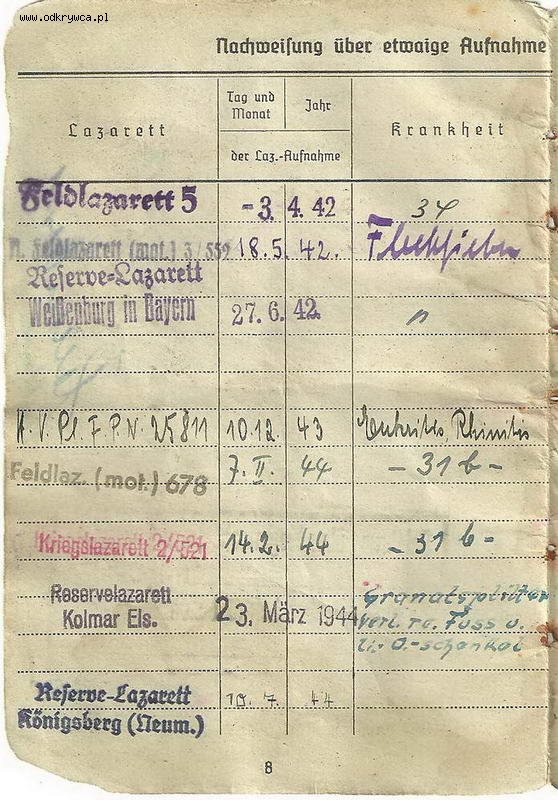 www.odkrywca.pl
Nachweisung über etwaige Aufnahme
Lazarett
Tag und Monat
Jahr
der Laz.-Aufnahme
Krankheit
Feldlazarett 5 - 3. 4. 42 34
Feldlazarett (mot.) 3/559 18. 5. 42. Fleckfieber
Reserve-Lazarett
Weißenburg in Bayern 27. 6. 42. "
H. V. Pl. F. P. N. 25811 10.12. 43 Rhinitis
Feldlaz. (mot.) 678 7. II. 44 - 31 b -
Kriegslazarett 2/521 14.2. 44 - 31 b -
Reservelazarett
Kolmar Els. 23. März 1944 Granatsplitter
verl. re. Fuss u.
li. O.-schenkel
Reserve-Lazarett 10. 7. 44
Königsberg (Neum.)
8